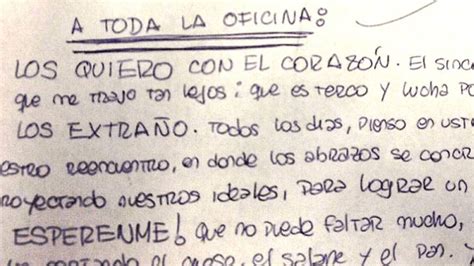 A TODA LA OFICINA:
LOS QUIERO CON EL CORAZÓN. El sinc
que me trajo tan lejos: que es terco y lucha po
LOS EXTRAÑO. Todos los días, pienso en uste
estro reencuentro, en donde los abrazos se concr
royectando nuestros ideales, para lograr un
ESPERENME! que no puede faltar mucho,
el salame y el pan. Y